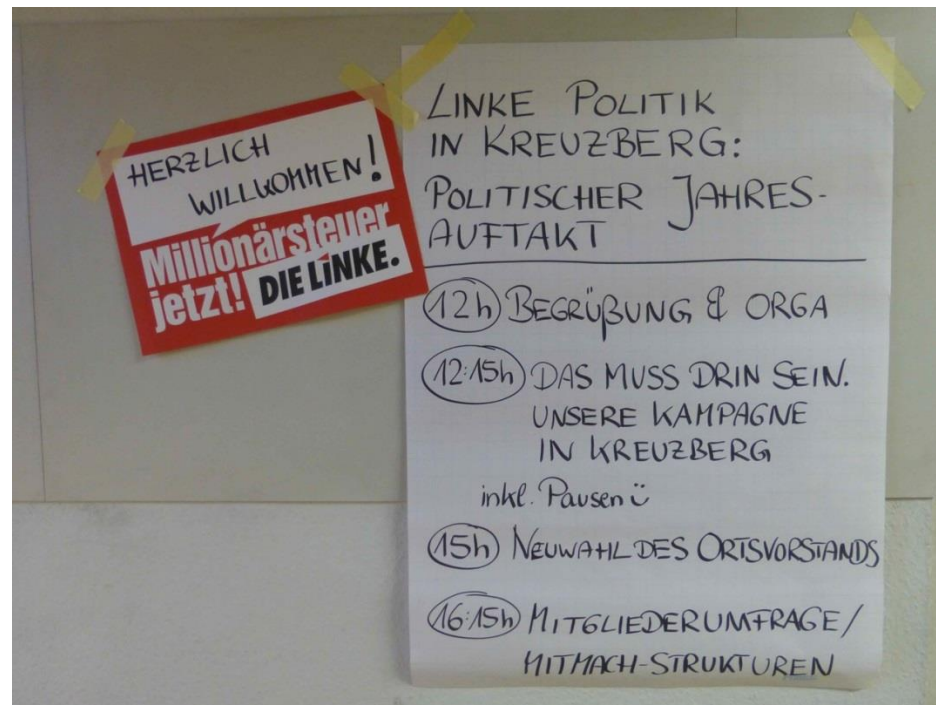 HERZLICH
WILLKOMMEN!
Millionärsteuer
jetzt! DIE LINKE.
LINKE POLITIK
IN KREUZBERG:
POLITISCHER JAHRES-
AUFTAKT
12h BEGRÜßUNG & ORGA
12:15h DAS MUSS DRIN SEIN.
UNSERE KAMPAGNE
IN KREUZBERG
inkl. Pausen ü
15h NEUWAHL DES ORTSVORSTANDS
16:15h MITGLIEDERUMFRAGE/
MITMACH-STRUKTUREN